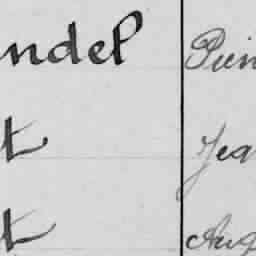 ndel Pier
t Jea
t Aug